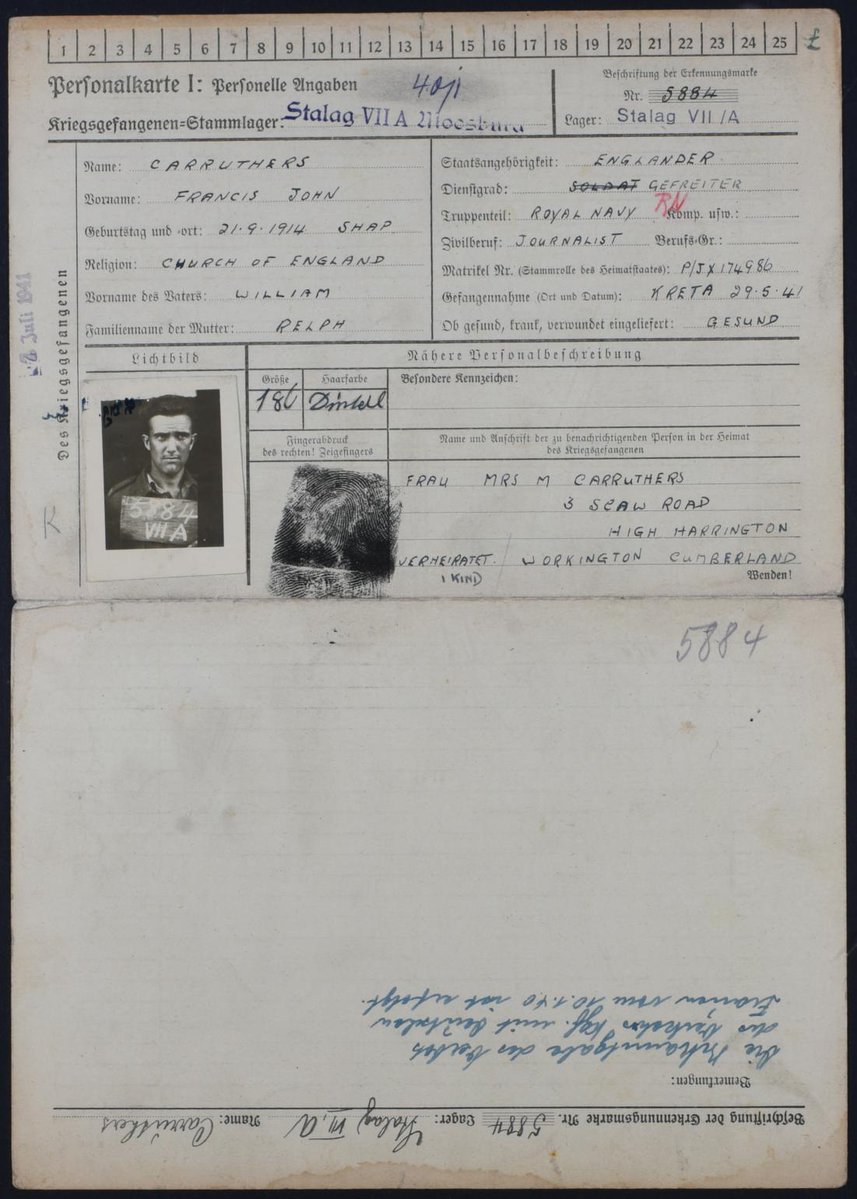 1 2 3 4 5 6 7 8 9 10 11 12 13 14 15 16 17 18 19 20 21 22 23 24 25
Personalkarte I: Personelle Angaben
Kriegsgefangenen=Stammlager: Stalag VII A Moosburg
Beschriftung der Erkennungsmarke
Nr. 5884
Lager: Stalag VII/A
Des Kriegsgefangenen
Juli 1941
Name: CARRUTHERS
Vorname: FRANCIS JOHN
Geburtstag und =ort: 21·9·1914 SHAP
Religion: CHURCH OF ENGLAND
Vorname des Vaters: WILLIAM
Familienname der Mutter: RELPH
Staatsangehörigkeit: ENGLANDER
Dienstgrad: SOLDAT GEFREITER
Truppenteil: ROYAL NAVY RN Komp. usw.:
Zivilberuf: JOURNALIST Berufs=Gr.:
Matrikel Nr. (Stammrolle des Heimatstaates): P/JX174986
Gefangennahme (Ort und Datum): KRETA 29·5·41
Ob gesund, krank, verwundet eingeliefert: GESUND
Lichtbild
5884
VII A
Nähere Personalbeschreibung
Größe
Haarfarbe
Besondere Kennzeichen:
Fingerabdruck
des rechten! Zeigefingers
Name und Anschrift der zu benachrichtigenden Person in der Heimat
des Kriegsgefangenen
FRAU MRS M CARRUTHERS
3 SCAW ROAD
HIGH HARRINGTON
VERHEIRATET. / WORKINGTON CUMBERLAND
1 KIND
Wenden!
5884
Beschriftung der Erkennungsmarke Nr. 5884 Lager: Stalag VII A Name: Carruthers
Bemerkungen:
Die Bekanntgabe des Verbots
des Verkehrs Kgf. mit deutschen
Frauen vom 10.1.40 ist erfolgt.